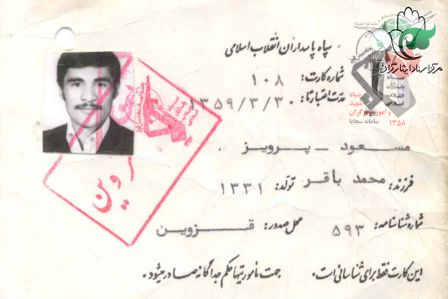 سپاه پاسداران انقلاب اسلامی
شماره کارت: ۱۰۸
مدت اعتبار تا: ۱۳۵۹/۳/۳۰
مسعود - پرویز
فرزند: محمد باقر تولد: ۱۳۳۱
شماره شناسنامه: ۵۹۳ محل صدور: قزوین
این کارت فقط برای شناسائی است. جهت مأموریتها حکم جداگانه صادر میشود.
مرکز اسناد ایثارگران
۱۳۵۸
سامانه سجایا